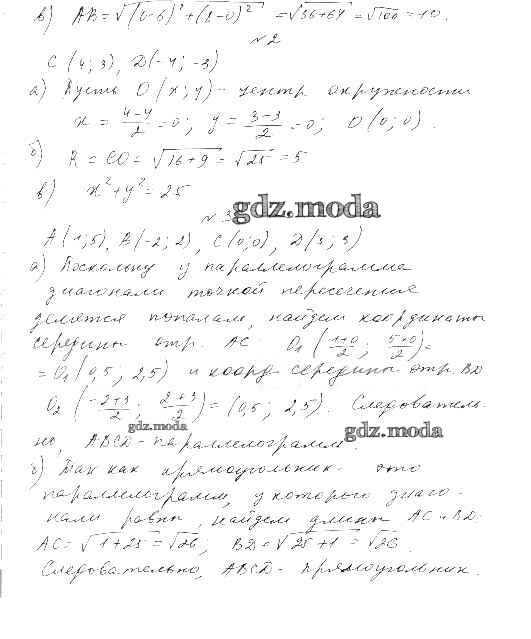 в) AB = √(0-6)² + (8-0)² = √36+64 = √100 = 10.
№2
C (4; 3), D(-4; -3)
а) Пусть O(x; y) - центр окружности
x = 4-4/2 = 0; y = 3-3/2 = 0; O(0; 0).
б) R = CO = √16+9 = √25 = 5
в) x² + y² = 25
№3
gdz.moda
A(1; 5), B(-2; 2), C(0; 0), D(3; 3)
а) Поскольку у параллелограмма
диагонали точкой пересечения
делятся пополам, найдем координаты
середины отр. AC O₁ (1+0/2; 5+0/2) =
= O₁(0,5; 2,5) и коорд. середины отр. BD
O₂ (-2+3/2; 2+3/2) = (0,5; 2,5). Следователь-
gdz.moda
но, ABCD - параллелограмм.
gdz.moda
б) Так как прямоугольник - это
параллелограмм, у которого диаго-
нали равны, найдем длины AC и BD:
AC = √1+25 = √26; BD = √25+1 = √26
Следовательно, ABCD - прямоугольник.